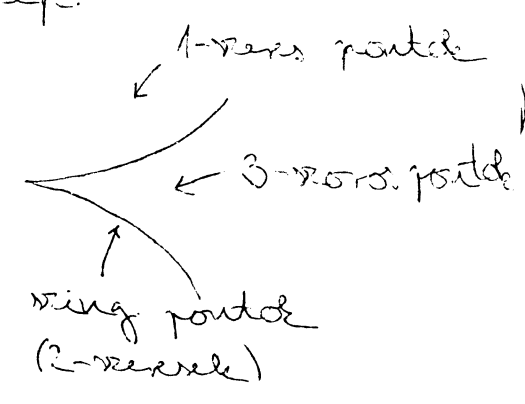 1-szeres pontok
3-szoros pontok
szing. pontok
(2-szeresek)